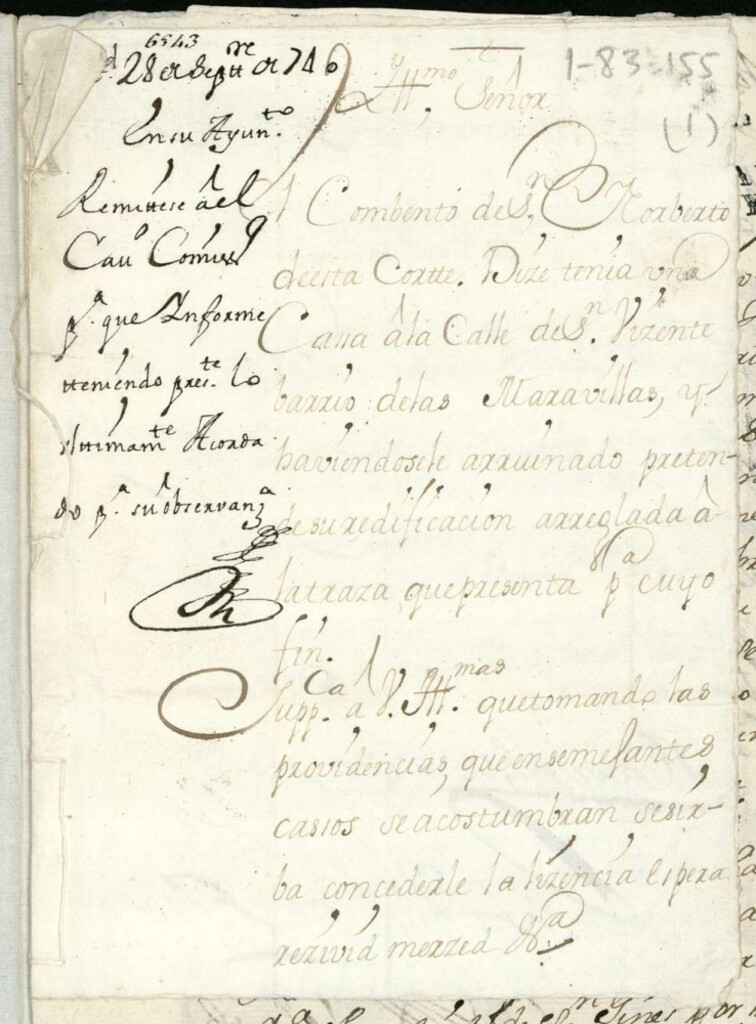 6543
28 de Septt.re de 740
En su Ayun.to
Remitese a el
Cavº Comiss.º
p.a que Informe
tteniendo pres.te lo
ultimam.te Acorda
do p.a su observan.za
1-83-155
(1)
Ill.mo Señor
El Combento de S.n Norberto
de esta Cortte. Dize tenia una
Cassa a la Calle de S.n Vizente
barrio de las Maravillas, y
haviendosele arruinado preten-
de su redificacion arreglada a
la traza, que presenta p.a cuyo
fin.
Supp.ca a V. Ill.mas que tomando las
providencias, que en semejantes
casos se acostumbran se sir-
ba concederle la lizencia espera
rezivir merzed &.a